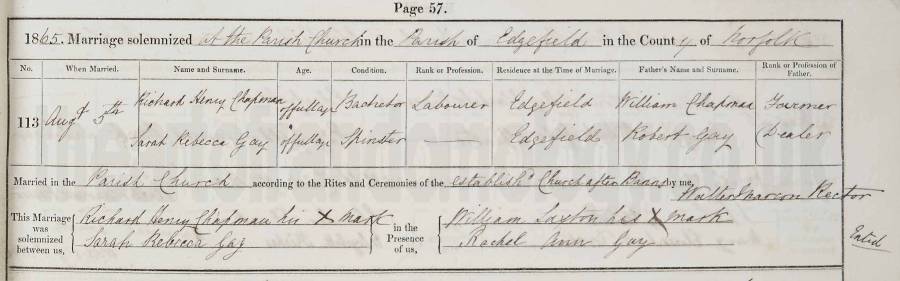 Page 57.
1865. Marriage solemnized at the Parish Church in the Parish of Edgefield in the County of Norfolk
No. When Married. Name and Surname. Age. Condition. Rank or Profession. Residence at the Time of Marriage. Father's Name and Surname. Rank or Profession of Father.
113 Augt 5th Richard Henry Chapman of full age Bachelor Labourer Edgefield William Chapman Farmer
Sarah Rebecca Gay of full age Spinster — Edgefield Robert Gay Dealer
Married in the Parish Church according to the Rites and Ceremonies of the establishd Church after Banns by me, Walter Marcon Rector
This Marriage was solemnized between us, { Richard Henry Chapman his X mark { in the Presence of us, { William Saxton his X mark
Sarah Rebecca Gay Rachel Ann Gay
Entd